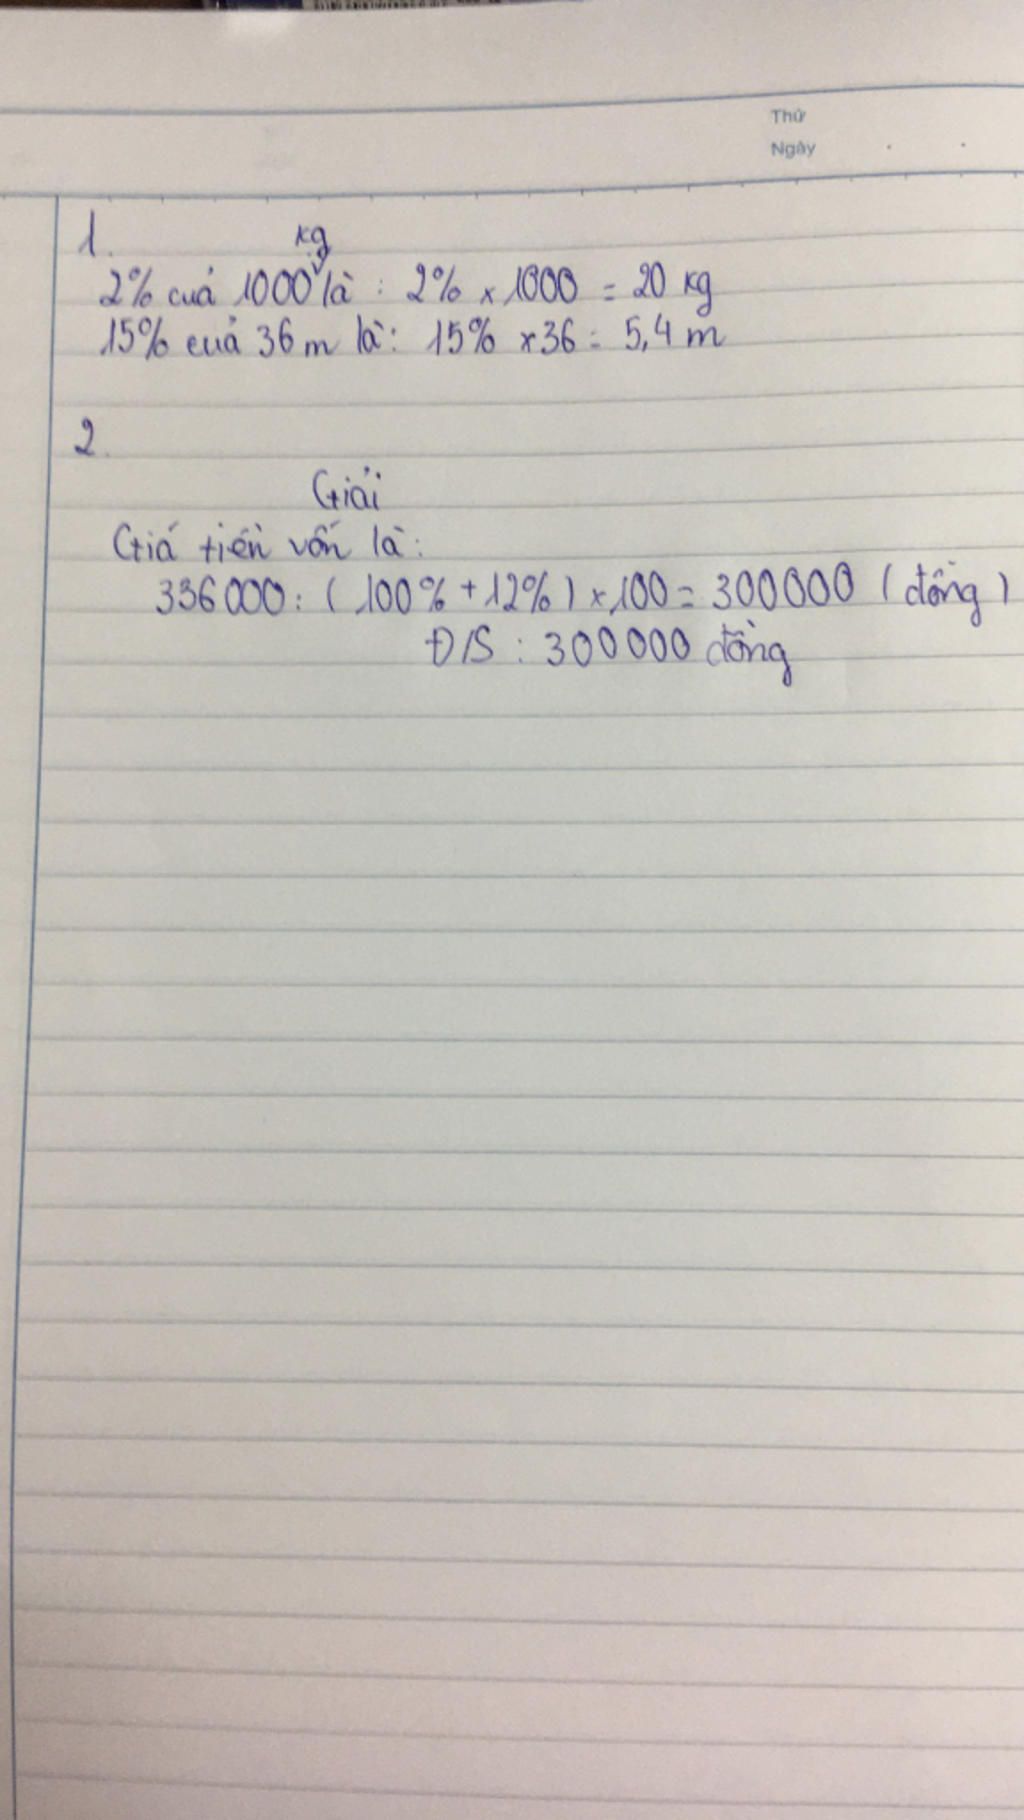 Thứ
Ngày
1.
kg
2% cuả 1000 là : 2% x 1000 = 20 kg
15% cuả 36 m là: 15% x 36 = 5,4 m
2.
Giải
Giá tiền vốn là:
336000 : ( 100% + 12% ) x 100 = 300000 ( đồng )
Đ/S : 300000 đồng